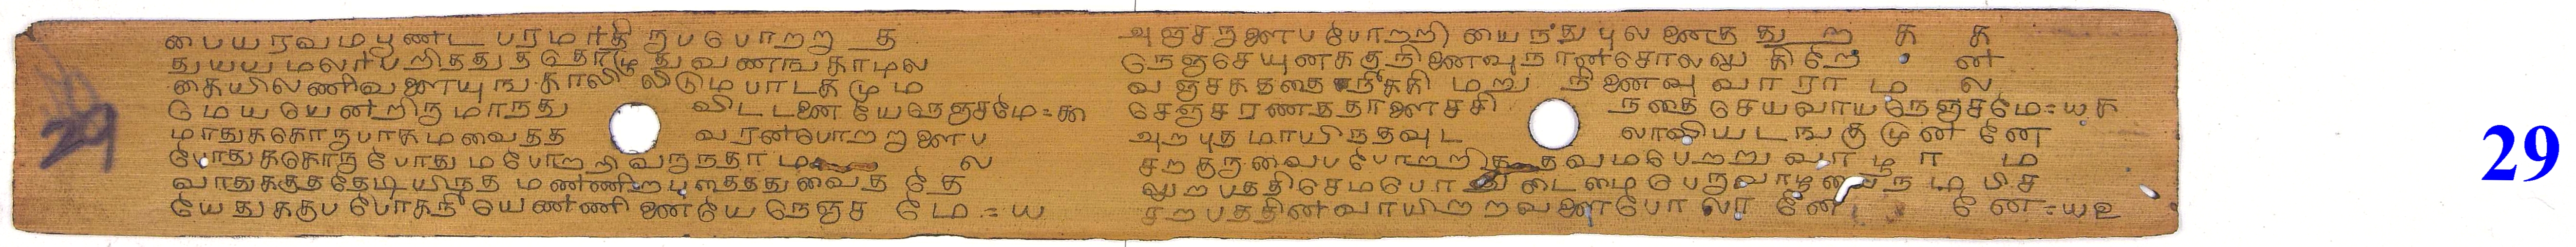 29
பையரவமபூண்ட பரமர்திருபபோறறு த
துயயமலர்பறிததுததொழுதுவணாஙகாமல
கையிலணிவளையுஙகாலிலிடுமபாடகமும
மேயயென்றிருமாநது விடடணையேநெஞசமே = ௯
மாதுககொருபாகமவைதத வரன்போறறுளப
போதுககொருபோதுமபோறறிவருநதாம ல
வாதுககுததேடியிருத மண்ணிறபுளதததுவைத தே
யேதுககுபபோகநீயெண்ணிணையேநெஞச மே = ய
அஞசநுளைபபோறறி யைநதுபுலனைத துற க க
நெஞசேயுனககுநினைவுநான்சொலலுகிறே ன்
வஞசகததைநீககி மறு நினைவு வாரா ம ல
செஞசரணததாளைசசி நதைசெயவாயநெஞசமே = யக
அறபுதமாயிருதவுட லாவியடஙகுமுன் னே
சறகுருவைபபோறறிதவமபெறறுவாழா ம
லுறபததிசெமபோதுடைமைபெருவாழவைநமபிச
சறபததின்வாயிறறவளைபோலா னேன் னே = ய௨
29